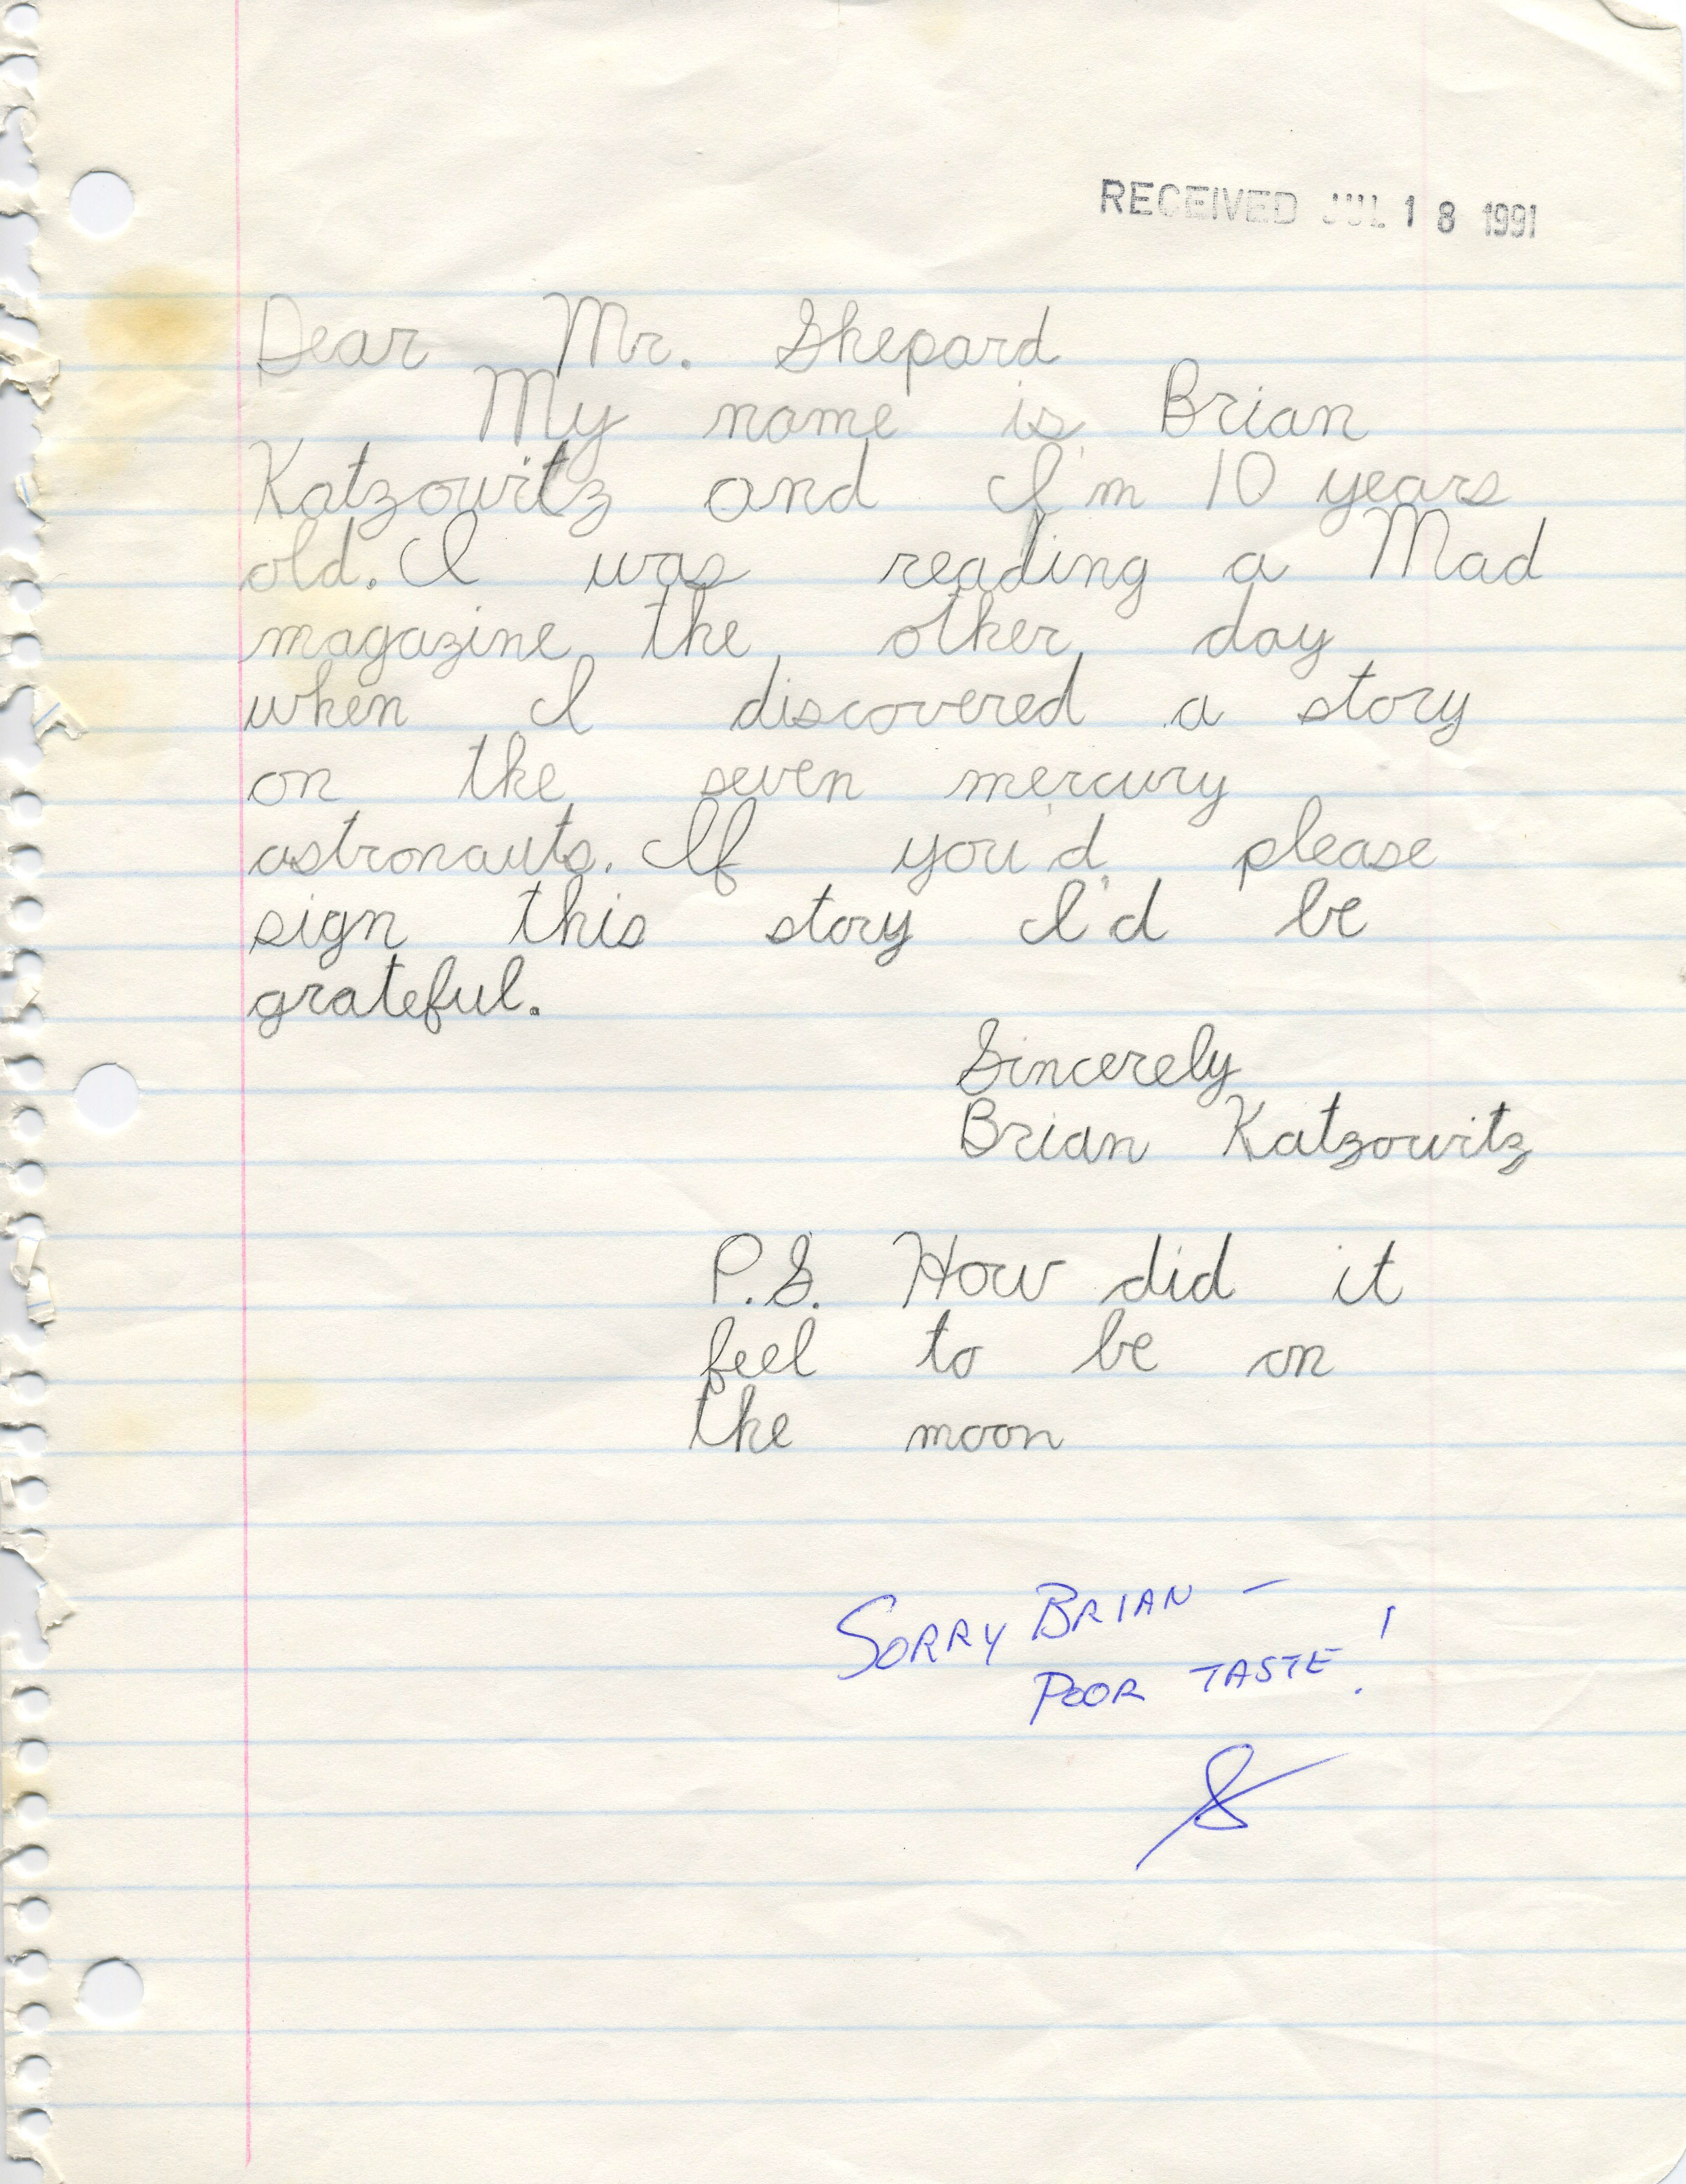 RECEIVED JUL 18 1991
Dear Mr. Shepard
My name is Brian
Katzowitz and I'm 10 years
old. I was reading a Mad
magazine the other day
when I discovered a story
on the seven mercury
astronauts. If you'd please
sign this story I'd be
grateful.
Sincerely
Brian Katzowitz
P.S. How did it
feel to be on
the moon
SORRY BRIAN –
POOR TASTE!